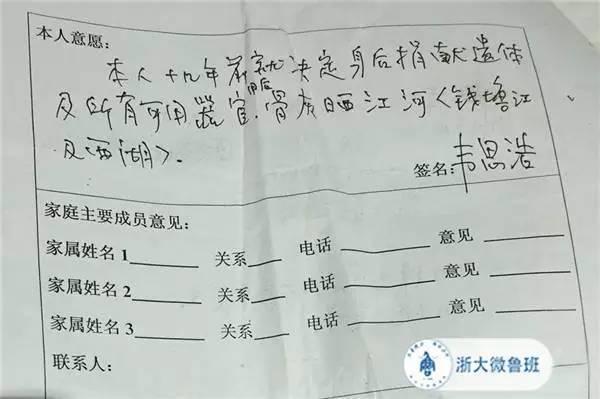 本人意愿：
本人十九年前就决定身后捐献遗体
及所有可用器官.用后骨灰晒江河<钱塘江
及西湖>.
签名：韦思浩
家庭主要成员意见：
家属姓名1______ 关系____ 电话______ 意见______
家属姓名2______ 关系____ 电话______ 意见______
家属姓名3______ 关系____ 电话______ 意见______
联系人：
浙大微鲁班